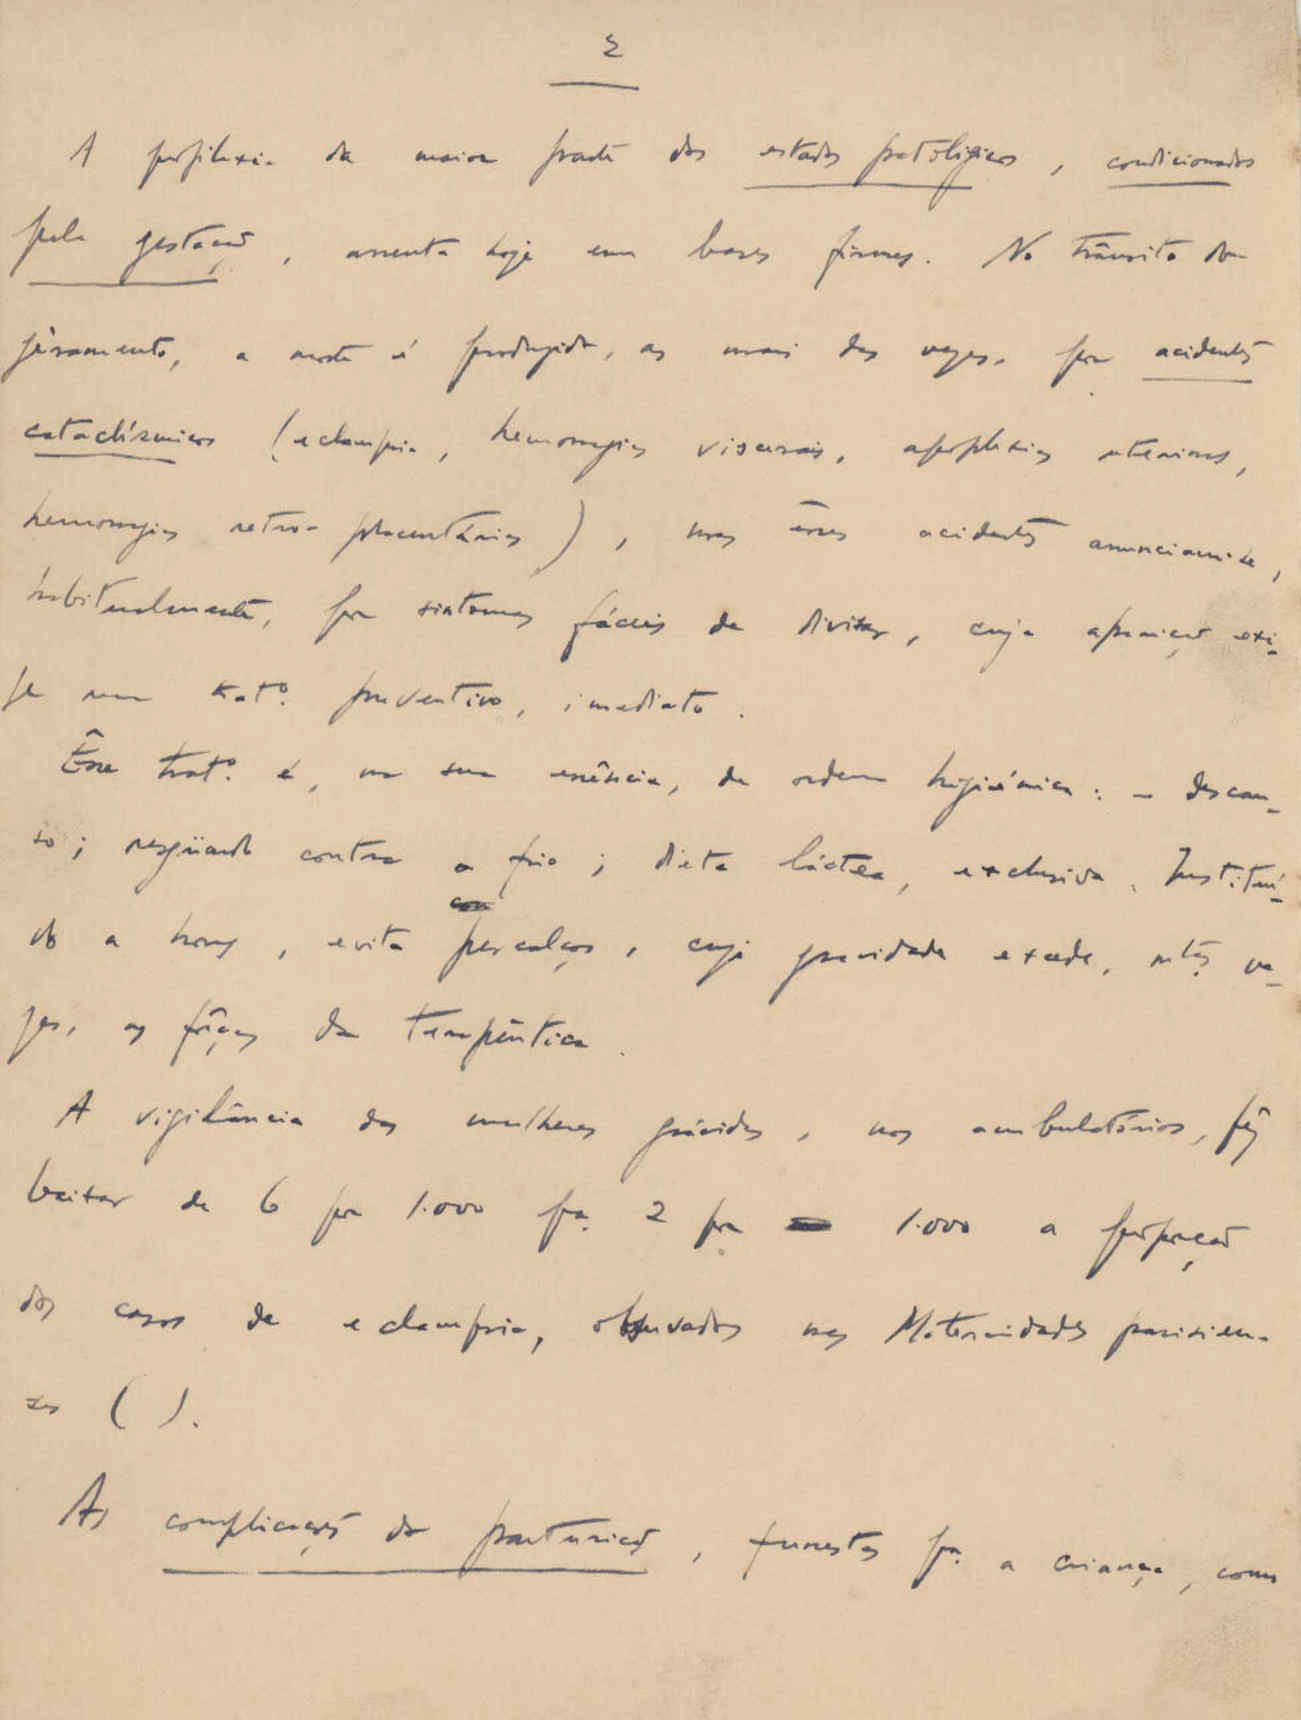 2
A profilaxia da maior parte dos estados patológicos, condicionados
pela gestação, assenta hoje em bases firmes. No trânsito do
geramento, a morte é produzida, as mais das vezes, por acidentes
cataclísmicos (eclampsia, hemorragias viscerais, apoplexias uterinas,
hemorragias retro-placentárias), mas êsses acidentes anunciam-se,
habitualmente, por sintomas fáceis de divisar, cuja aparição exi-
ge um trat.º preventivo, imediato.
Êsse trat.º é, na sua essência, de ordem higiénica: - descan-
so; resguardo contra o frio; dieta láctea, exclusiva. Instituí-
do a horas, evita percalços, cuja gravidade excede, mtas ve-
zes, as fôrças da terapêutica.
A vigilância das mulheres grávidas, nos ambulatórios, fêz
baixar de 6 por 1.000 pa. 2 por 1.000 a proporção
dos casos de eclampsia, observados nas Maternidades parisien-
ses ( ).
As complicações da parturição, funestas pa. a criança, como